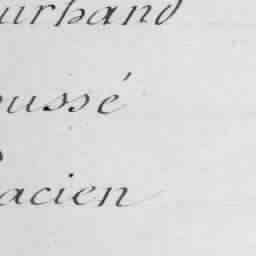 urband
ussé
acien